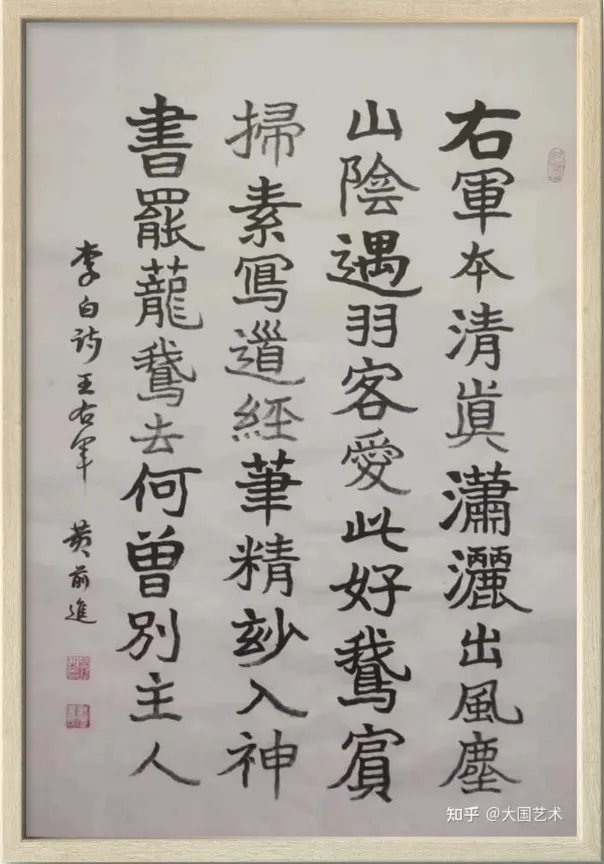 右軍本清眞瀟灑出風塵
山陰遇羽客愛此好鵝賓
掃素寫道經筆精玅入神
書罷蘢鵝去何曾別主人
李白诗王右軍 黄前進
知乎 @大国艺术